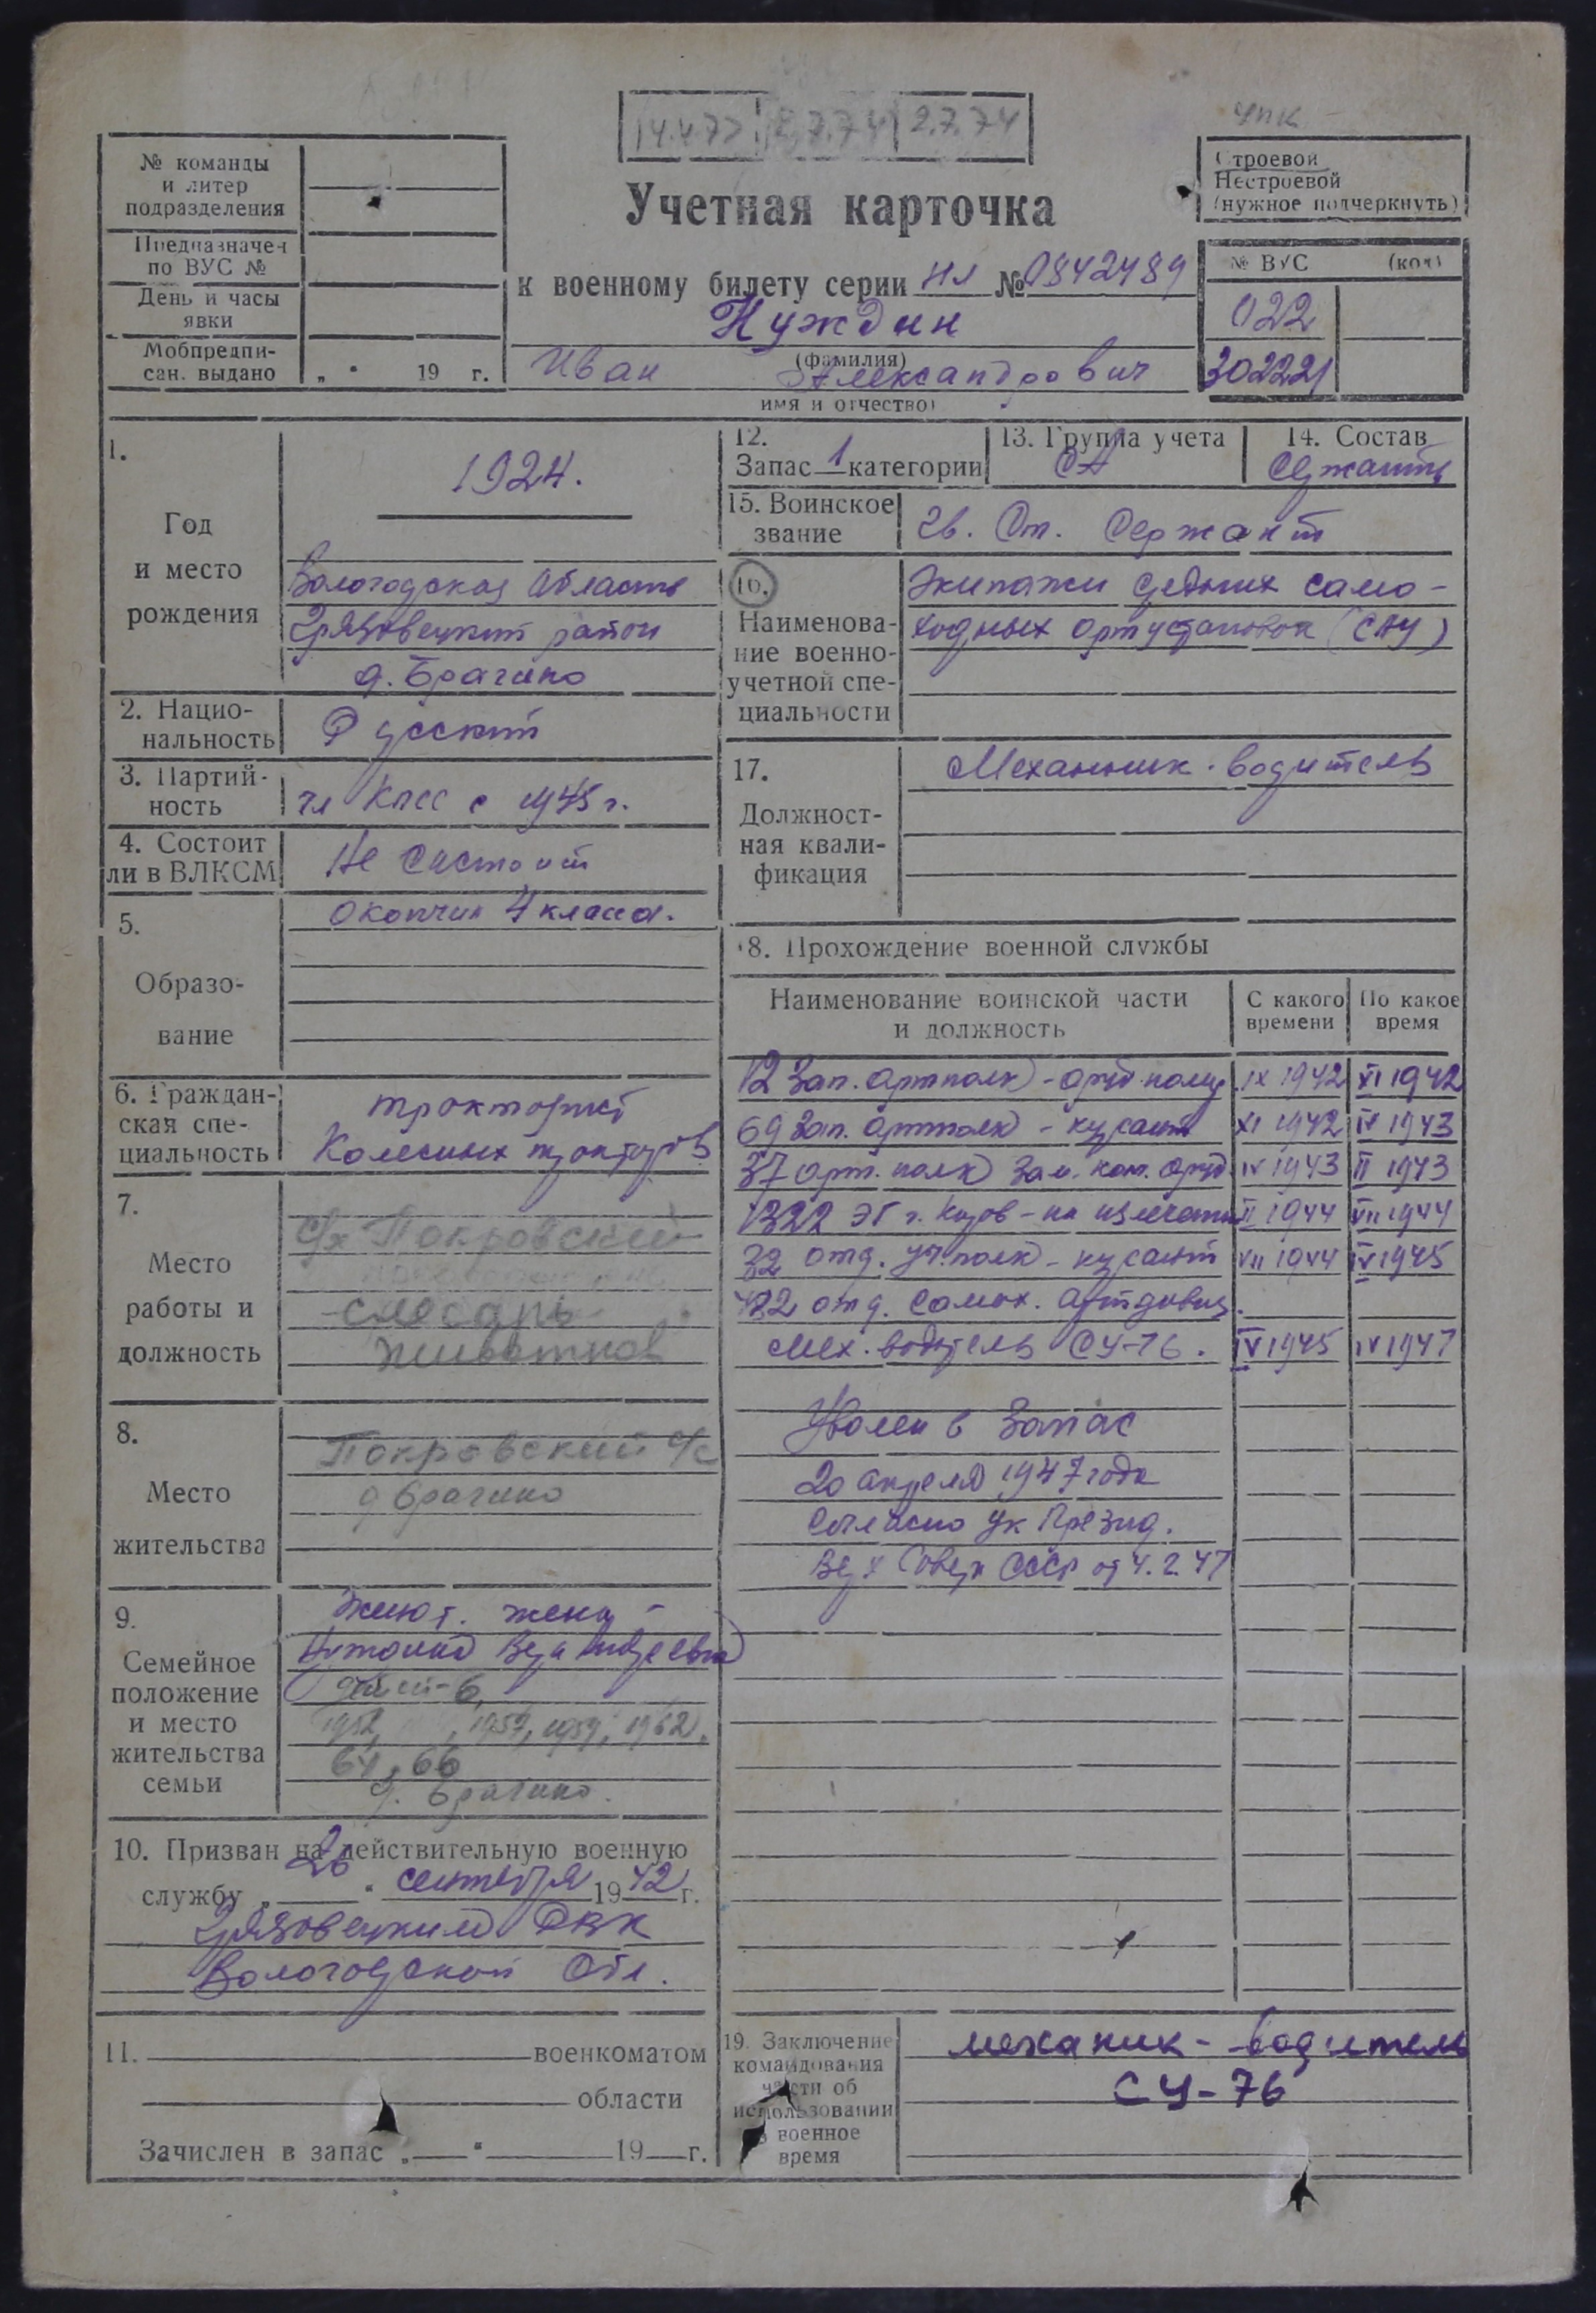 14.4.77 2.7.74 2.7.74
УПК
№ команды
и литер
подразделения
Предназначен
по ВУС №
День и часы
явки
Мобпредпи-
сан. выдано „ " 19 г.
Учетная карточка
к военному билету серии НЛ № 0842489
Нуждин
(фамилия)
Иван Александрович
имя и отчество)
Строевой
Нестроевой
(нужное подчеркнуть)
№ ВУС (код)
022
302221
1.
Год
и место
рождения
1924.
Вологодская область
Грязовецкий район
д. Брагино
2. Нацио-
нальность Русский
3. Партий-
ность чл КПСС с 1945 г.
4. Состоит
ли в ВЛКСМ Не состоит
5.
Образо-
вание
Окончил 4 класса.
6. Граждан-
ская спе-
циальность
тракторист
Колесных тракторов
7.
Место
работы и
должность
с/х Покровский
слесарь
8.
Место
жительства
Покровский с/с
д Брагино
9.
Семейное
положение
и место
жительства
семьи
жена -
дети-6
1952, 1957, 1959, 1962,
64, 66
д. Брагино.
10. Призван на действительную военную
службу „ 26 " сентября 1942 г.
Грязовецким РВК
Вологодской Обл.
11. военкоматом
области
Зачислен в запас „ " 19 г.
12.
Запас 1 категории
13. Группа учета
СА
14. Состав
Сержанты
15. Воинское
звание
Гв. Ст. Сержант
16.
Наименова-
ние военно-
учетной спе-
циальности
Экипажи средних само-
ходных артустановок (САУ)
17.
Должност-
ная квали-
фикация
Механник-водитель
18. Прохождение военной службы
Наименование воинской части
и должность
С какого
времени
По какое
время
12 Зап. артполк - оруд номер IX 1942 XI 1942
69 Зап. артполк - курсант XI 1942 IV 1943
37 арт. полк Зам. ком. оруд IV 1943 II 1943
1322 ЭГ г. Киров - на излечении II 1944 VII 1944
32 отд. уч. полк - курсант VII 1944 IV 1945
422 отд. самох. артдивиз.
Мех. водитель СУ-76. IV 1945 IV 1947
Уволен в Запас
20 апреля 1947 года
Согласно Ук Презид.
Верх Совета СССР от 4.2.47
19. Заключение
командования
части об
использовании
в военное
время
механик-водитель
СУ-76